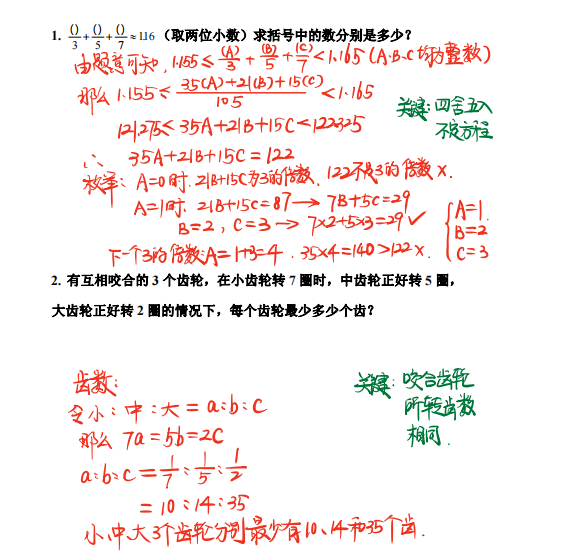 1. ()/3 + ()/5 + ()/7 ≈ 1.16 （取两位小数）求括号中的数分别是多少？
由题意可知, 1.155 ≤ (A)/3 + (B)/5 + (C)/7 < 1.165 (A、B、C均为整数)
那么 1.155 ≤ 35(A)+21(B)+15(C)/105 < 1.165
关键: 四舍五入
不定方程
121.275 ≤ 35A+21B+15C < 122.325
∴ 35A+21B+15C = 122
枚举: A=0时. 21B+15C为3的倍数, 122不是3的倍数 ×.
A=1时. 21B+15C=87 → 7B+5C=29
B=2, C=3 → 7×2+5×3=29 ✓
下一个3的倍数: A=1+3=4. 35×4=140>122 ×.
{A=1.
B=2
C=3
2. 有互相咬合的3个齿轮，在小齿轮转7圈时，中齿轮正好转5圈，
大齿轮正好转2圈的情况下，每个齿轮最少多少个齿？
齿数:
令小:中:大=a:b:c
那么 7a=5b=2c
a:b:c=1/7:1/5:1/2
=10:14:35
小中大3个齿轮分别最少有10、14和35个齿.
关键: 咬合齿轮
所转齿数
相同.